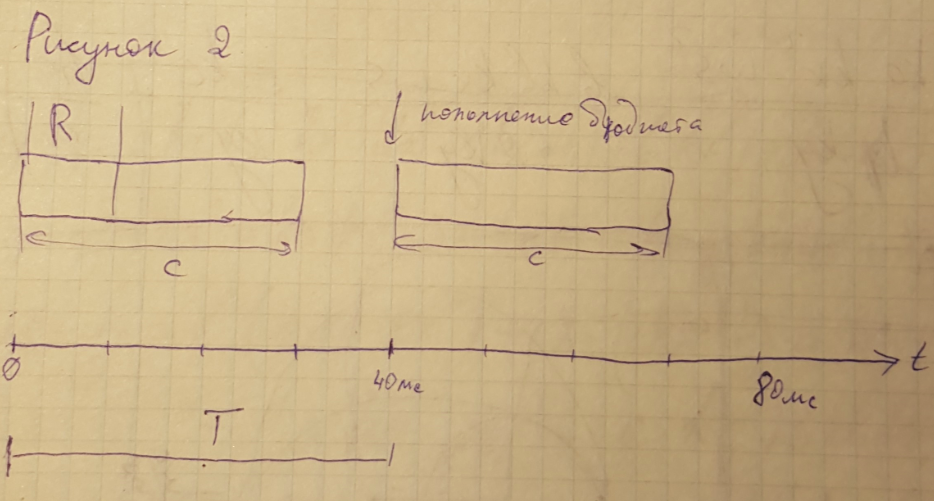 Рисунок 2
R
пополнение бюджета
C
C
0
40мс
80мс
t
T